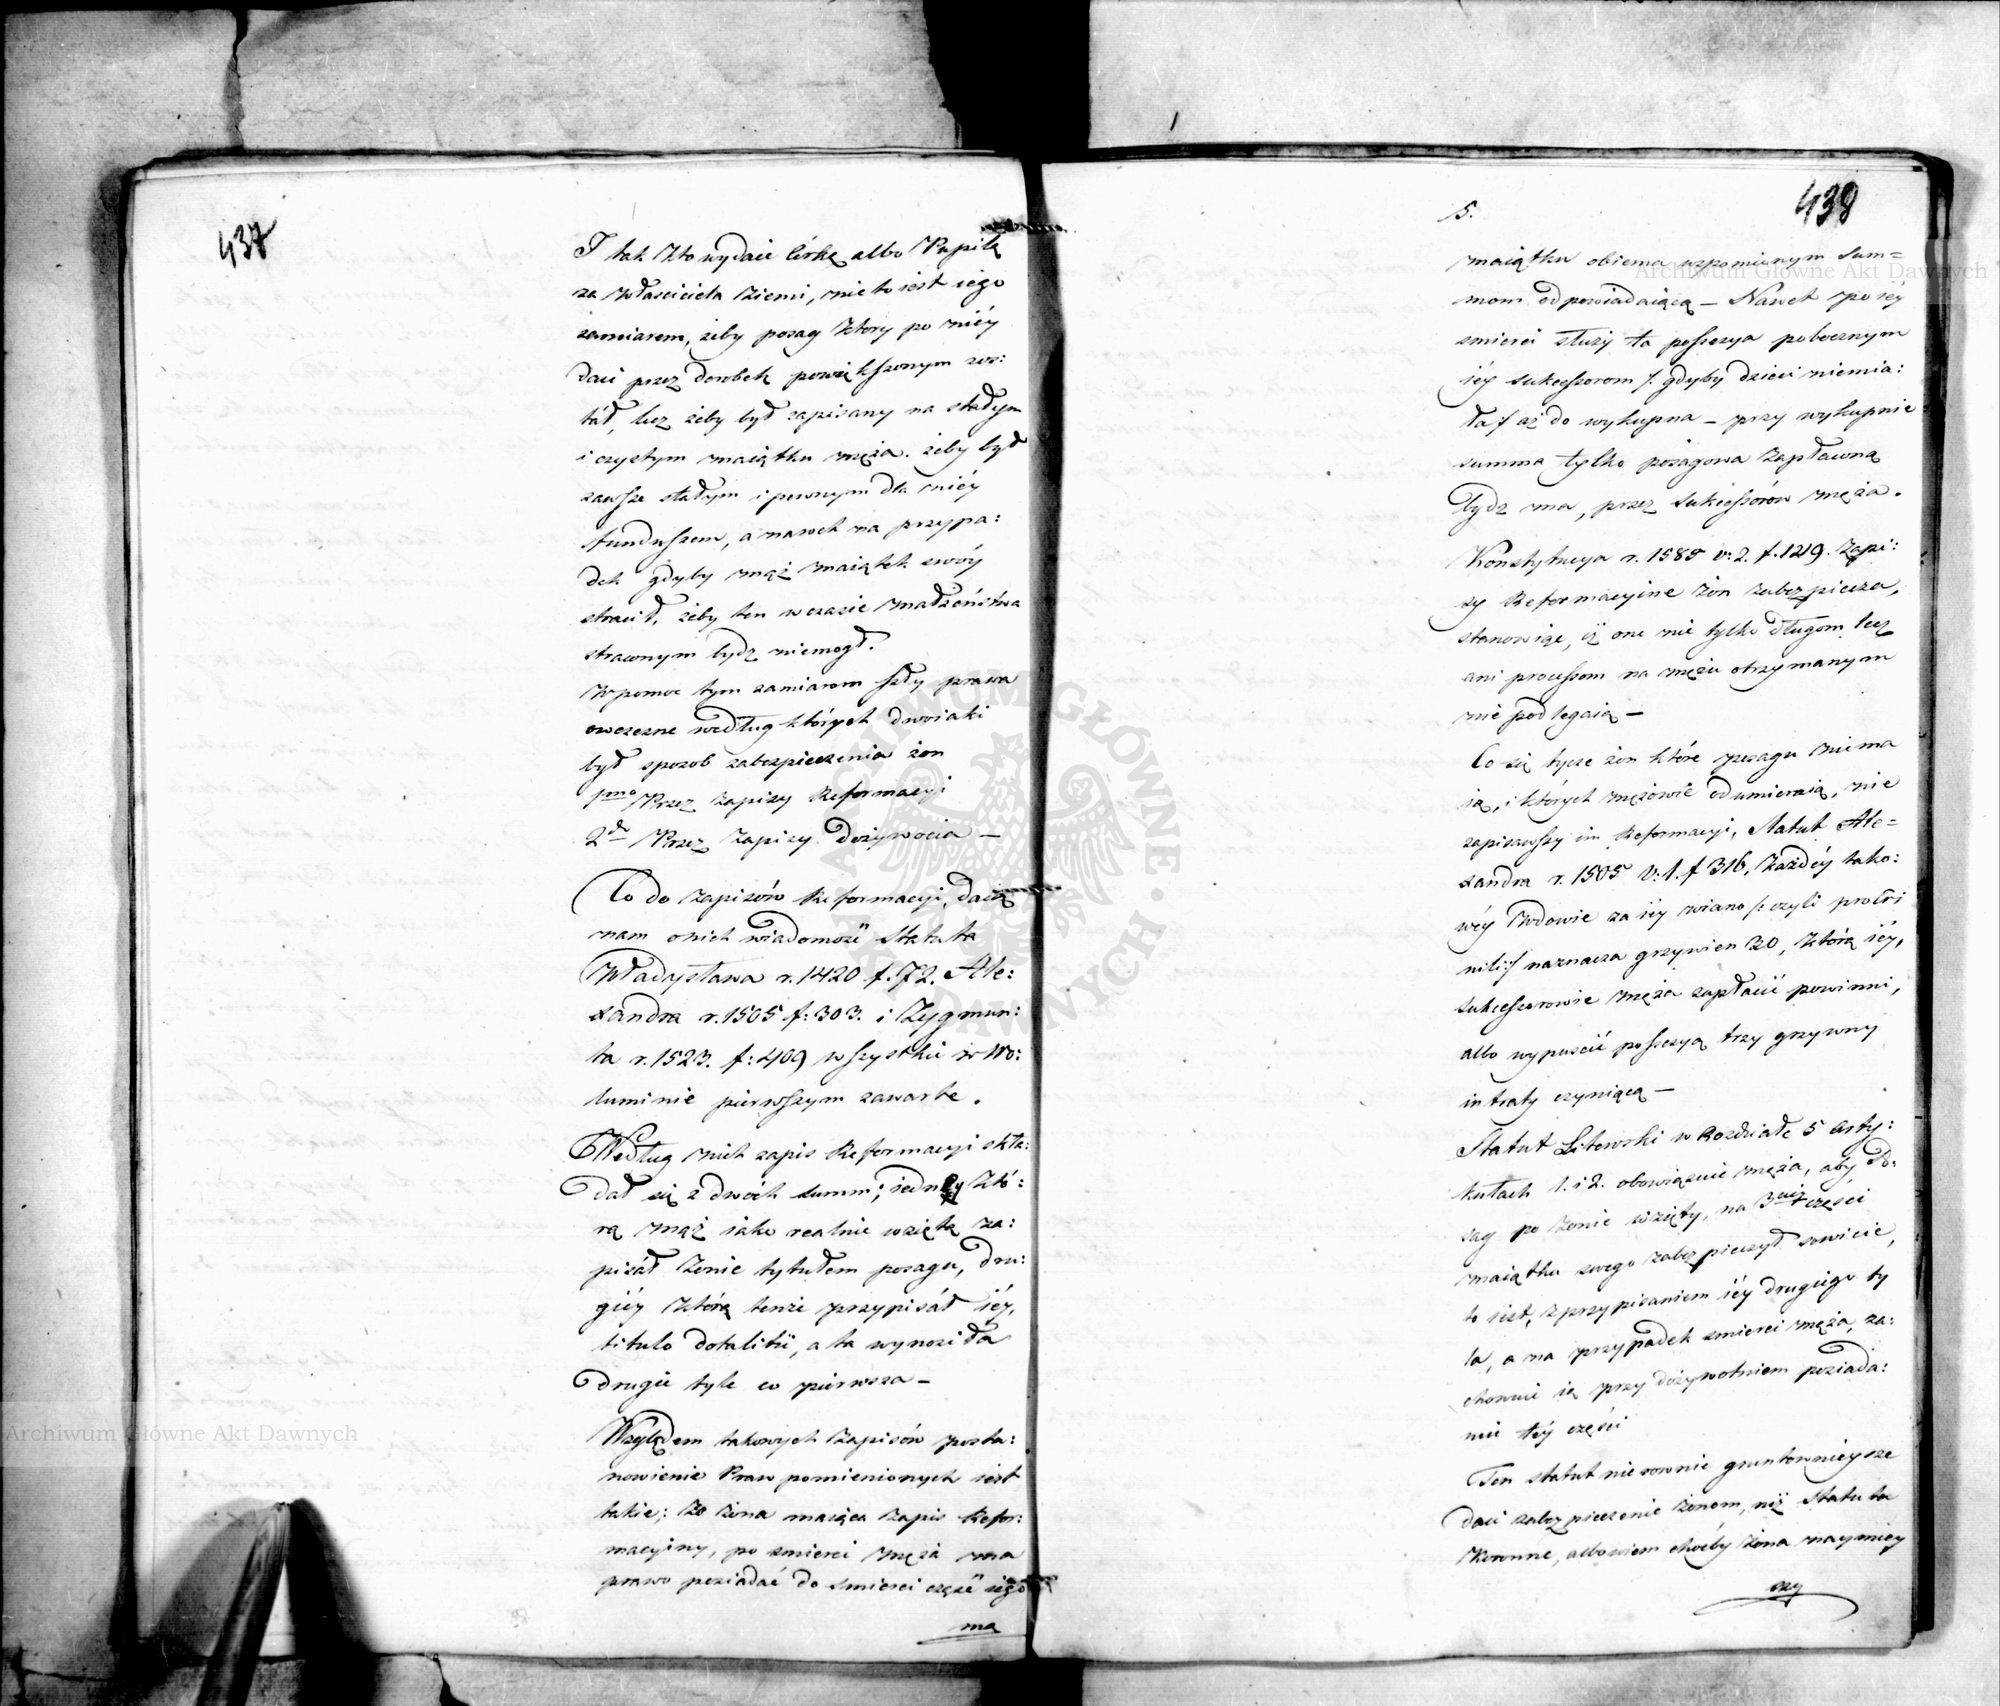 437
I tak kto wydaie Córkę albo Pupilę
za właściciela ziemi, nie to iest iego
zamiarem, żeby posag ktory po niéy
daie przez dorobek powiększonym zos:
tał, lecz żeby był zapisany na stałym
i czystym maiątku męża. żeby był
zawsze stałym i pewnym dla niéy
funduszem, a nawet na przypa:
dek gdyby mąż maiątek swóy
stracił, żeby ten w czasie małżeństwa
strawnym bydz niemogł.
W pomoc tym zamiarom szły prawa
owczesne według których dwoiaki
był sposob zabezpieczenia żon
1mo Przez zapisy Reformacyi
2do Przez zapisy Dożywocia —
Co do zapisów Reformacyi, daią
nam o nich wiadomość Statuta
Władysława r. 1420 f. 72. Ale:
xandra r. 1505 f: 303. i Zygmun:
ta r. 1523. f: 409 wszystkie w Wo:
luminie pierwszym zawarte.
Według nich zapis Reformacyi skła:
dał się z dwóch summ; iedney któ:
rą mąż iako realnie wziętą za:
pisał żonie tytułem posagu, dru:
giéy którą tenże przypisał iéy,
titulo dotalitii, a ta wynosiła
drugie tyle co pierwsza —
Względem takowych zapisów posta:
nowienie Praw pomienionych iest
takie; że żona maiąca zapis Refor:
macyiny, po smierci męża ma
prawo posiadać do smierci część iego
ma
5.
438
maiątku obiema wspomionym Sum=
mom odpowiadaiącą — Nawet po iéy
smierci służy ta possessya pobocznym
iéy sukcessorom /: gdyby dzieci niemia:
ła :/ aż do wykupna — przy wykupnie
summa tylko posagowa zapłaconą
bydz ma, przez sukcessorów męża.
Konstytucya r. 1588 v: 2. f. 1219. zapi:
sy Reformacyine żon zabezpiecza,
stanowiąc, iż one nie tylko długom lecz
ani processom na mężu otrzymanym
nie podlegaią —
Co się tycze żon które posagu niema
ią, i których mężowie odumieraią, nie
zapisawszy im Reformacyi, Statut Ale=
xandra r. 1505 V: 1. f 316, każdéy tako:
wéy wdowie za iéy wiano /: czyli pro Cri
nili :/ naznacza grzywien 30, którą iéy,
sukcessorowie męża zapłacić powinni,
albo wypuścić possessyą trzy grzywny
intraty czyniącą —
Statut Litewski w Rozdziale 5 Arty:
kułach 1. i 2. obowiązuie męża, aby Po:
sag po żonie wzięty, na 3ciey części
maiątku swego zabezpieczył sowicie,
to iest, z przypisaniem iéy drugiego ty
la, a na przypadek smierci męża, za:
chowuie ią przy dożywotniem posiada:
niu téy części
Ten statut nierownie gruntownieysze
daie zabezpieczenie żonom, niż Statuta
Koronne, albowiem choćby żona naymniey
szy
Archiwum Główne Akt Dawnych
Archiwum Główne Akt Dawnych
ARCHIWUM GŁÓWNE AKT DAWNYCH